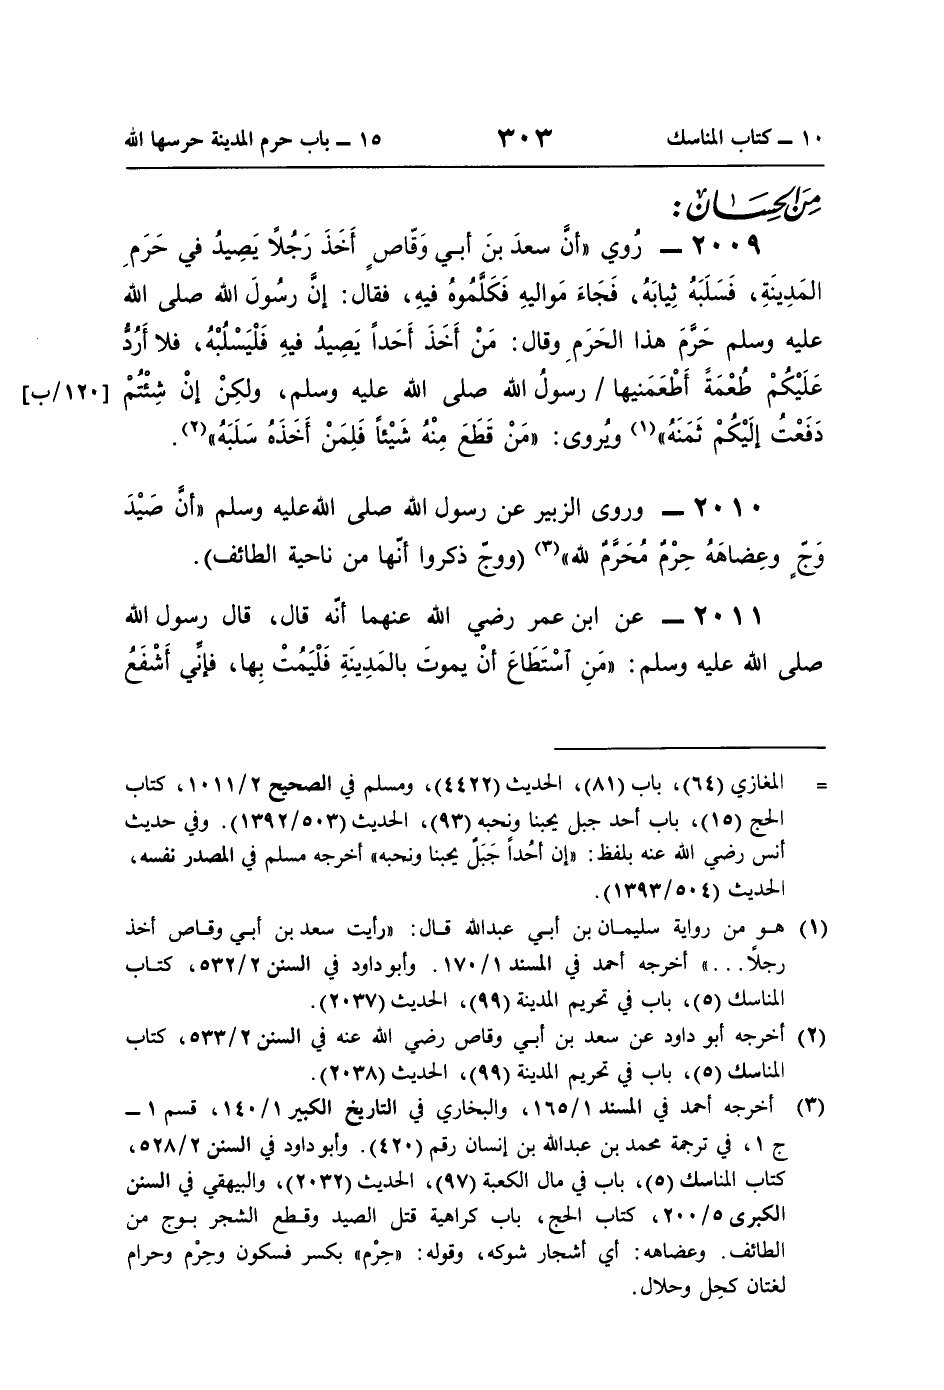 ١٠ ــ كتاب المناسك ٣٠٣ ١٥ ــ باب حرم المدينة حرسها الله
مِنَ الحِسَان :
٢٠٠٩ ــ رُوي «أنَّ سعدَ بنَ أبي وَقّاصٍ أَخَذَ رَجُلاً يَصِيدُ في حَرَمِ
المَدِينَةِ، فَسَلَبَهُ ثِيابَهُ، فَجَاءَ مَواليهِ فَكَلَّمُوهُ فيهِ، فقال: إنَّ رسُولَ الله صلى الله
عليه وسلم حَرَّمَ هذا الحَرَمِ وقال: مَنْ أَخَذَ أَحَداً يَصِيدُ فيهِ فَلْيَسْلُبْهُ، فلا أَرُدُّ
عَلَيْكُمْ طُعْمَةً أَطْعَمَنيها / رسولُ الله صلى الله عليه وسلم، ولكِنْ إنْ شِئْتُمْ [١٢٠/ب]
دَفَعْتُ إلَيْكُمْ ثَمَنَهُ»(١) ويُروى: «مَنْ قَطَعَ مِنْهُ شَيْئاً فَلِمَنْ أَخَذَهُ سَلَبَهُ»(٢).
٢٠١٠ ــ وروى الزبير عن رسول الله صلى الله عليه وسلم «أنَّ صَيْدَ
وَجٍّ وعِضاهَهُ حِرْمٌ مُحَرَّمٌ لله»(٣) (ووجّ ذكروا أنّها من ناحية الطائف).
٢٠١١ ــ عن ابن عمر رضي الله عنهما أنّه قال، قال رسول الله
صلى الله عليه وسلم: «مَنِ ٱسْتَطَاعَ أنْ يموتَ بالمَدِينَةِ فَلْيَمُتْ بِها، فإنِّي أَشْفَعُ
= المغازي (٦٤)، باب (٨١)، الحديث (٤٤٢٢)، ومسلم في الصحيح ١٠١١/٢، كتاب
الحج (١٥)، باب أحد جبل يحبنا ونحبه (٩٣)، الحديث (١٣٩٢/٥٠٣). وفي حديث
أنس رضي الله عنه بلفظ: «إن أُحُداً جَبَلٌ يحبنا ونحبه» أخرجه مسلم في المصدر نفسه،
الحديث (١٣٩٣/٥٠٤).
(١) هـو من رواية سليمـان بن أبي عبدالله قـال: «رأيت سعد بن أبي وقـاص أخذ
رجلًا...» أخرجه أحمد في المسند ١٧٠/١. وأبو داود في السنن ٥٣٢/٢، كتـاب
المناسك (٥)، باب في تحريم المدينة (٩٩)، الحديث (٢٠٣٧).
(٢) أخرجه أبو داود عن سعد بن أبـي وقاص رضي الله عنه في السنن ٥٣٣/٢، كتاب
المناسك (٥)، باب في تحريم المدينة (٩٩)، الحديث (٢٠٣٨).
(٣) أخرجه أحمد في المسند ١٦٥/١، والبخاري في التاريخ الكبير ١٤٠/١، قسم ١ ــ
ج ١، في ترجمة محمد بن عبدالله بن إنسان رقم (٤٢٠). وأبو داود في السنن ٥٢٨/٢،
كتاب المناسك (٥)، باب في مال الكعبة (٩٧)، الحديث (٢٠٣٢)، والبيهقي في السنن
الكبرى ٢٠٠/٥، كتاب الحج، باب كراهية قتل الصيد وقـطع الشجر بـوج من
الطائف. وعضاهه: أي أشجار شوكه، وقوله: «حِرْم» بكسر فسكون وحِرْم وحرام
لغتان كحِل وحلال.